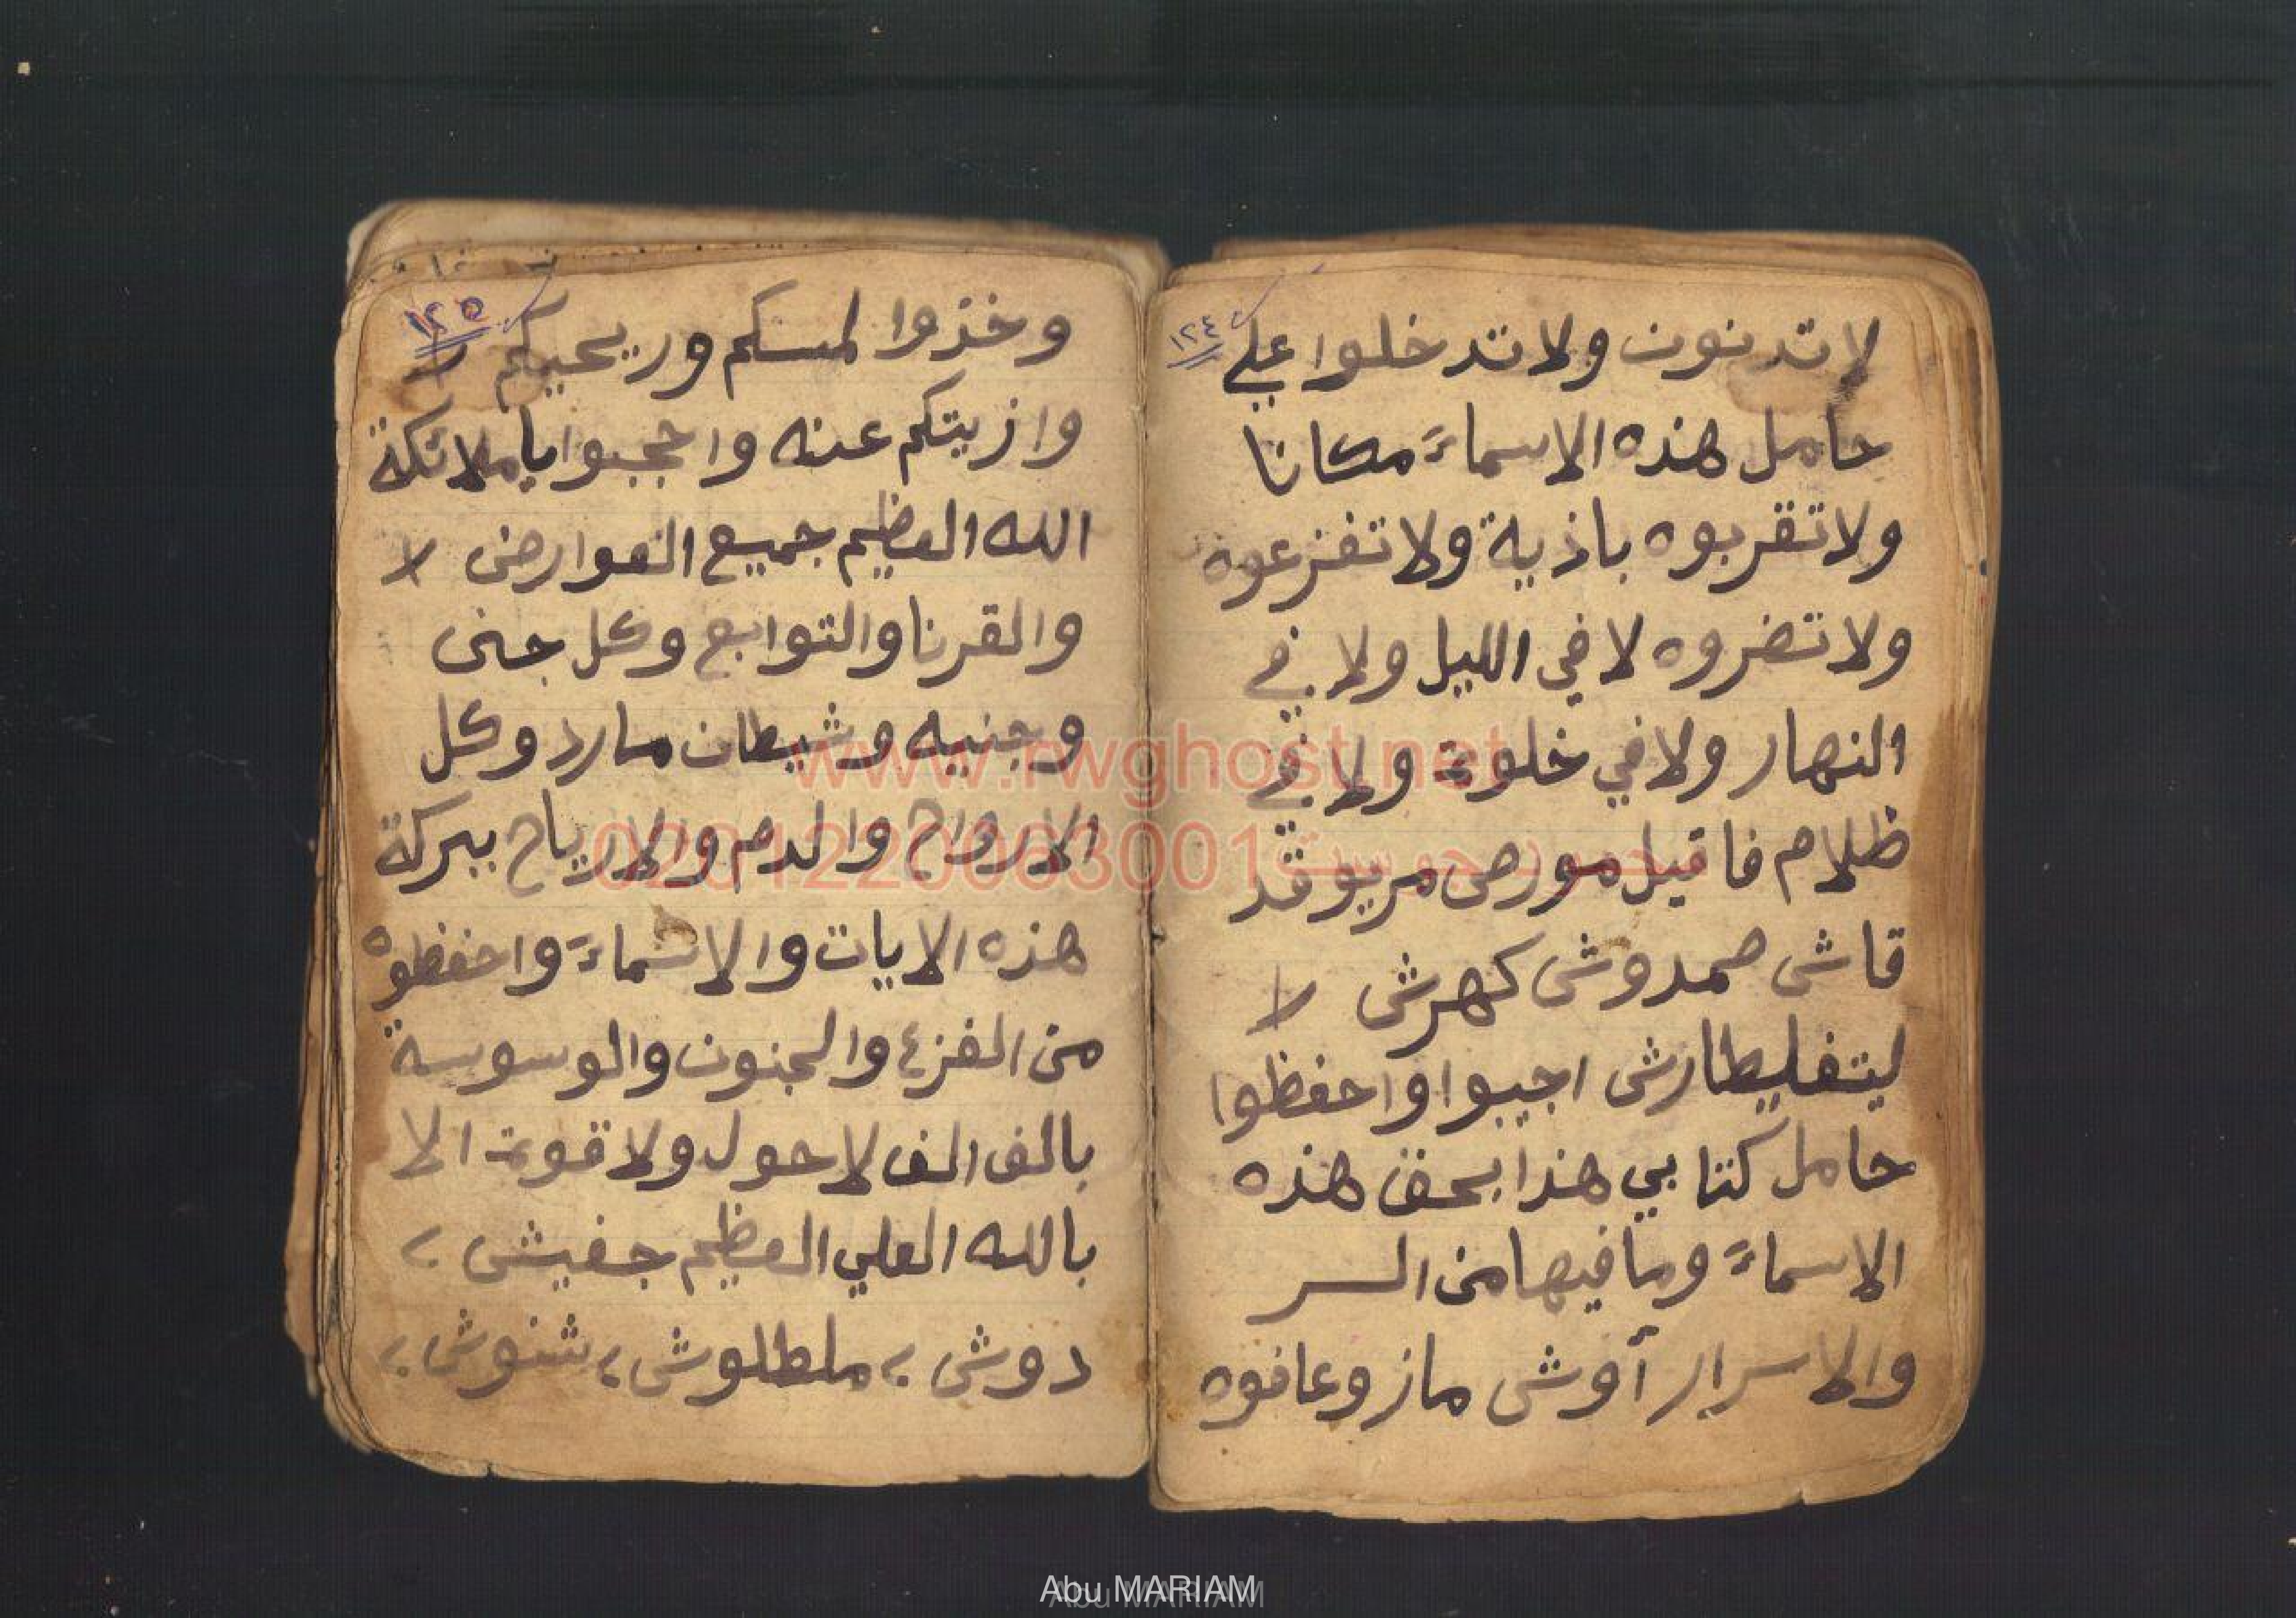 ١٢٤
لا تدنون ولا تدخلوا علي
حامل هذه الاسماءَ مكانا
ولا تقربوه باذية ولا تفزعوه
ولا تضروه لا في الليل ولا في
النهار ولا في خلوة ولا في
ظلام فاقيل مورص مريوقد
قاش صمدوش كهرش
ليتغليطارش اجيبوا واحفظوا
حامل كتابي هذا بحق هذه
الاسماءَ وما فيها من السر
والاسرار آوش ماز وعافوه
١٢٥
وخذوا لمسكم وريحيكم
وازيتكم عنه واحجبوا يا ملائكة
الله العظيم جميع العوارض
والقرنا والتوابع وكل جنى
وجنيه وشيطان مارد وكل
الارواح والدم والارياح ببركة
هذه الايات والاسماءَ واحفظوه
من الفزع والجنون والوسوسة
بالف الف لا حول ولا قوة الا
بالله العلي العظيم جغيش ٢
دوش ٢ ملطلوش ٢ شنوش ٢
www.rwghost.net
0201220063001
Abu MARIAM